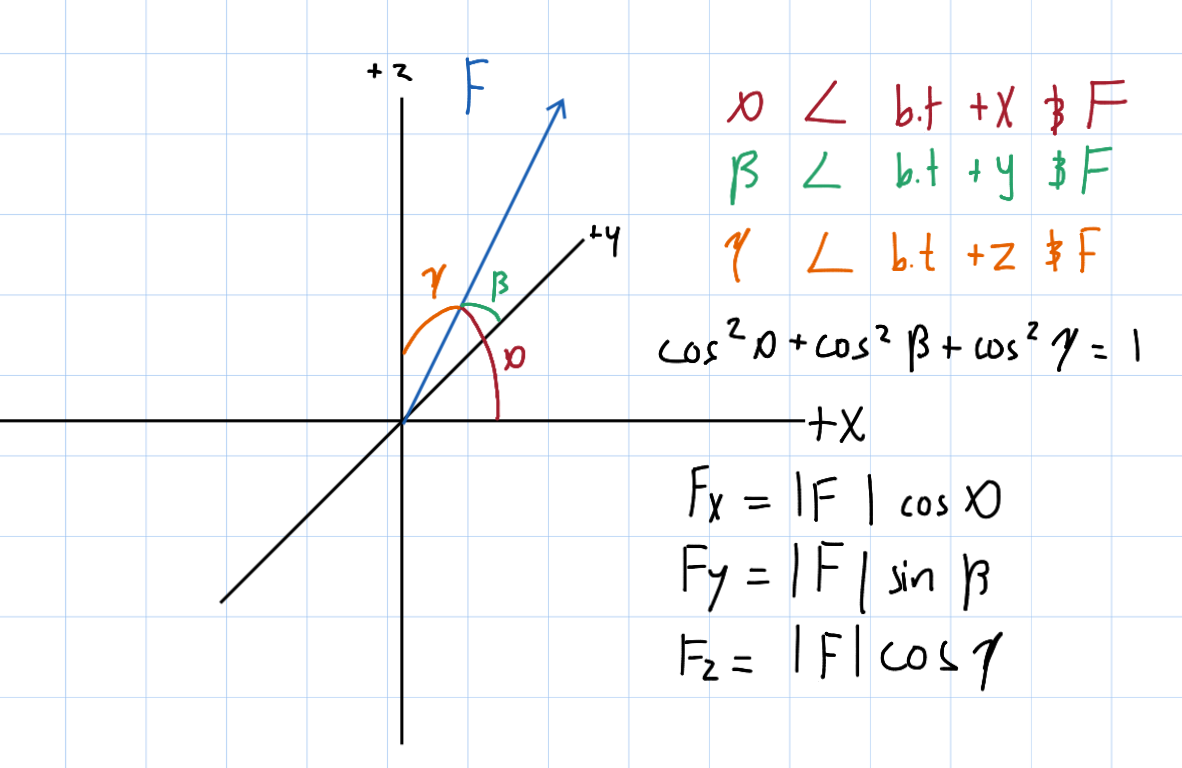 +z
F
α ∠ b.t +x & F
β ∠ b.t +y & F
+y
γ ∠ b.t +z & F
γ
β
cos²α + cos²β + cos²γ = 1
α
+x
Fx = |F| cos α
Fy = |F| sin β
Fz = |F| cos γ